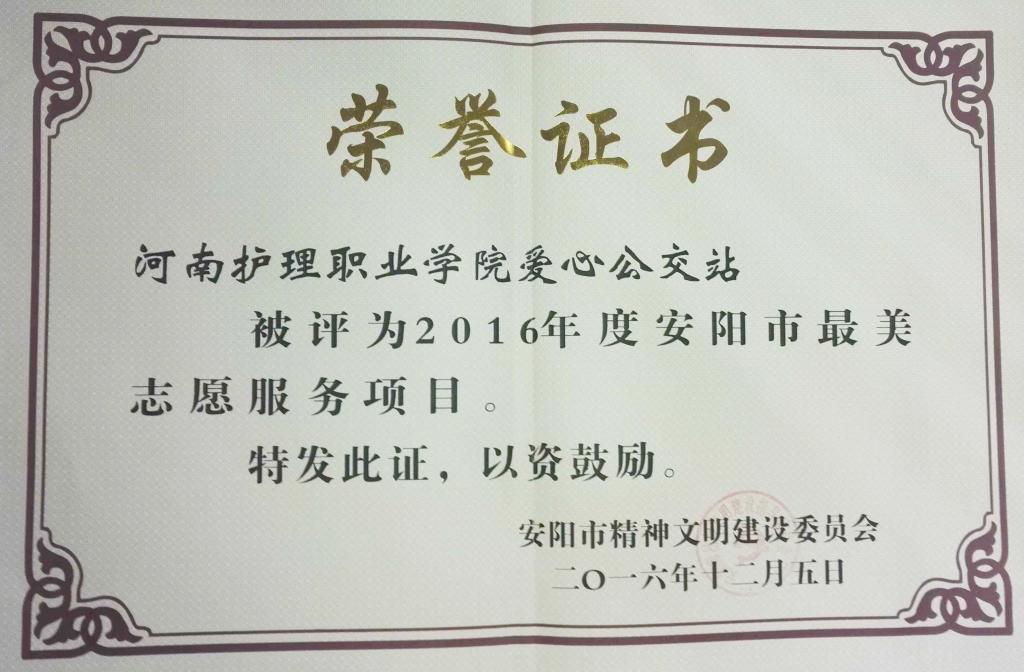 荣誉证书
河南护理职业学院爱心公交站
被评为2016年度安阳市最美
志愿服务项目。
特发此证，以资鼓励。
安阳市精神文明建设委员会
二〇一六年十二月五日